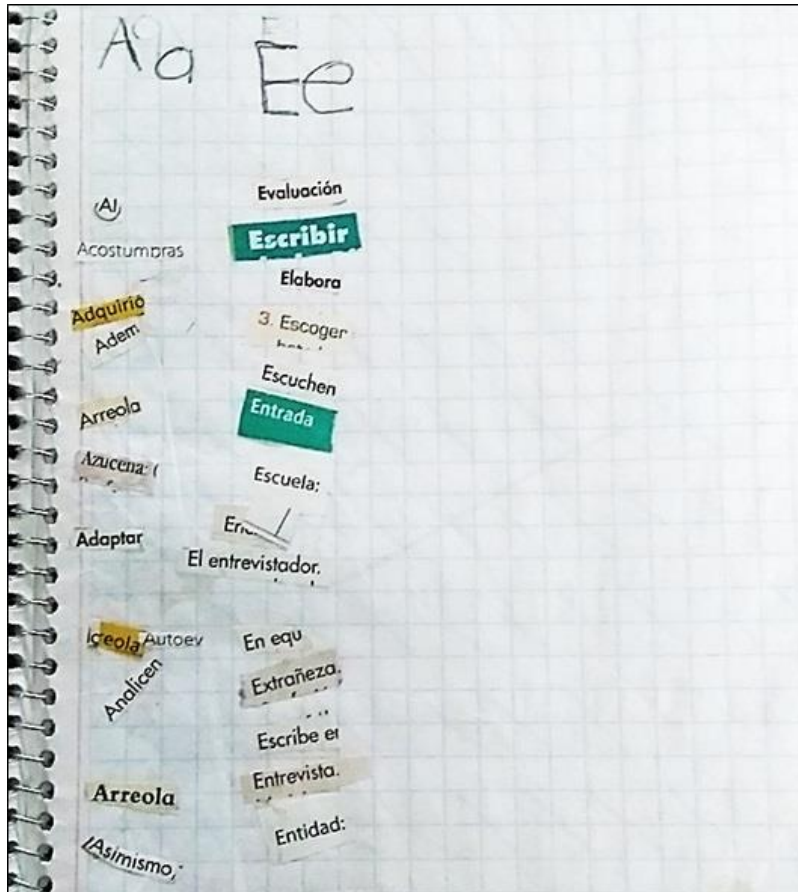 Aa Ee
Al
Acostumbras
Adquirió
Adem
Arreola
Azucena: (
Adaptar
Autoev
Analicen
Arreola
¡Asimismo,
Evaluación
Escribir
Elabora
3. Escoger
Escuchen
Entrada
Escuela:
El entrevistador.
En equ
Extrañeza.
Escribe
Entrevista.
Entidad: